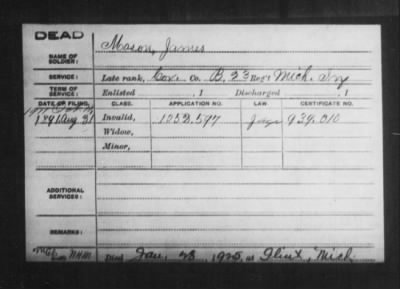 DEAD
NAME OF SOLDIER:
Mason, James
SERVICE:
Late rank, Co. B, 23 Reg't Mich. Inf
TERM OF SERVICE:
Enlisted , 1 Discharged , 1
DATE OF FILING. CLASS. APPLICATION NO. LAW. CERTIFICATE NO.
1891 Aug 31 Invalid, 1052.597 939.010
Widow,
Minor,
ADDITIONAL SERVICES:
REMARKS:
Died Jan. 28, 1925, at Flint, Mich.